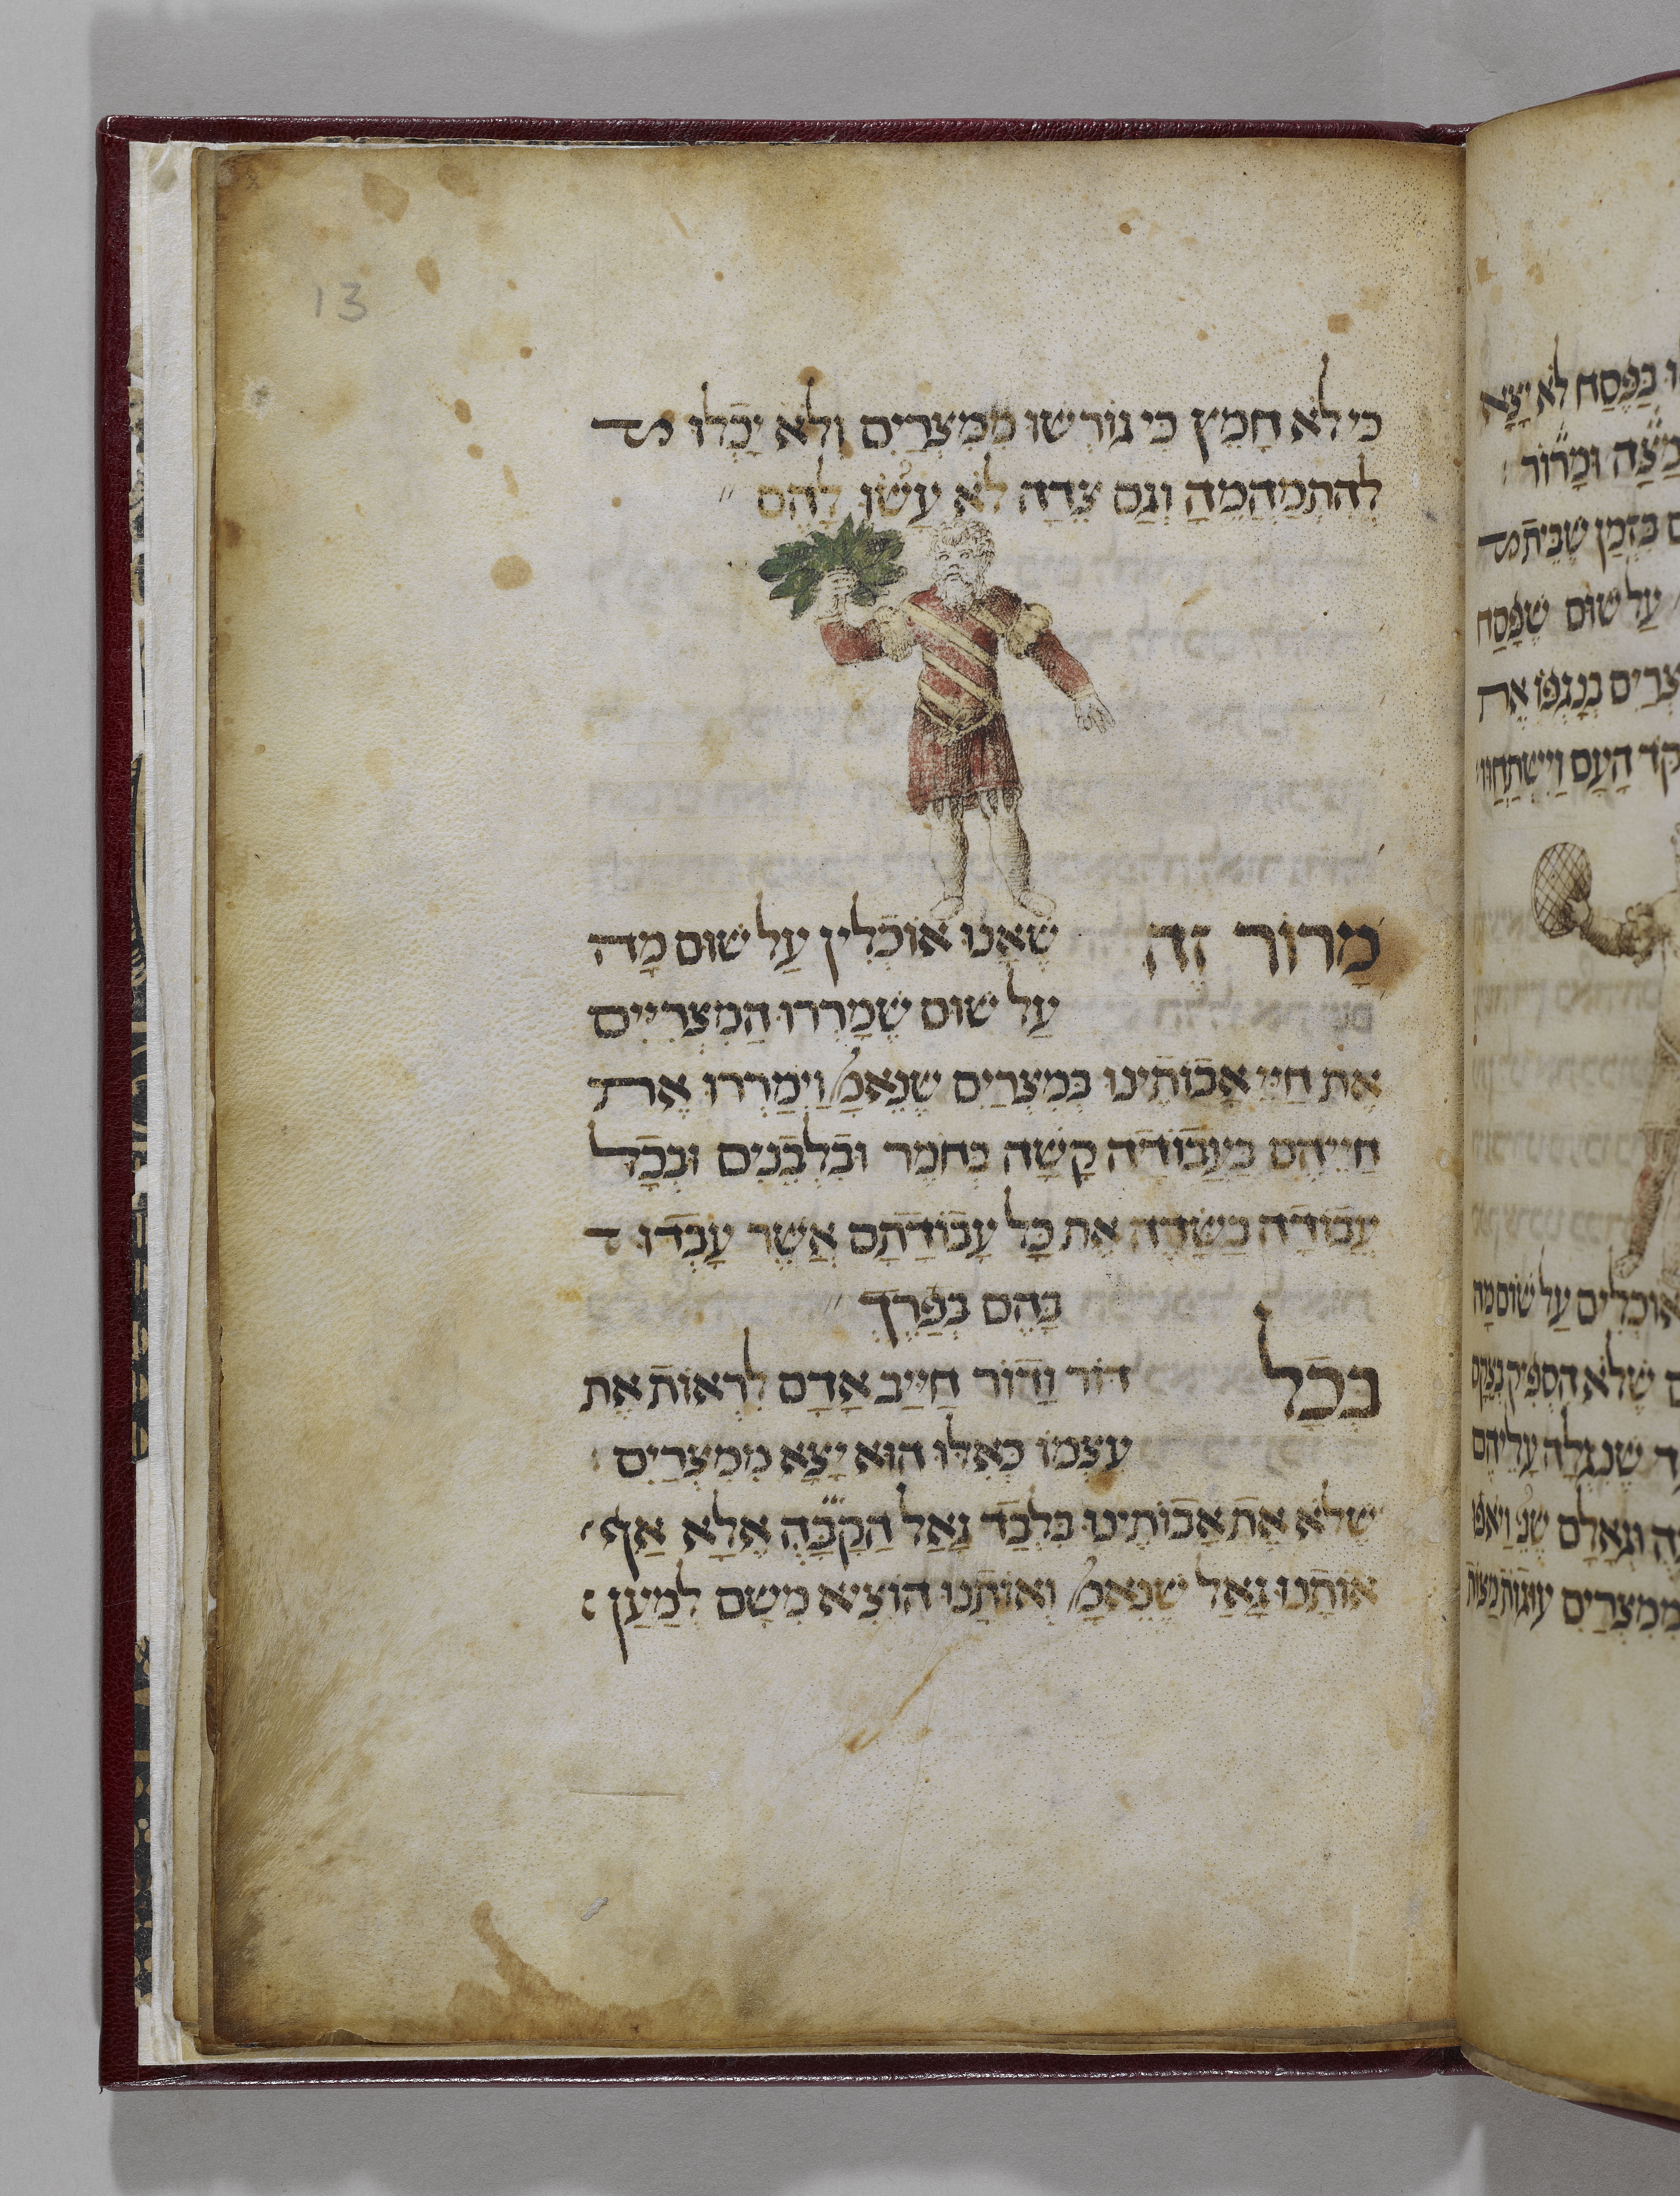 13
כִּי לֹא חָמֵץ כִּי גוֹרְשׁוּ מִמִּצְרַיִם וְלֹא יָכְלוּ
לְהִתְמַהְמֵהַּ וְגַם צֵדָה לֹא עָשׂוּ לָהֶם
מָרוֹר זֶה שֶׁאָנוּ אוֹכְלִין עַל שׁוּם מָה
עַל שׁוּם שֶׁמָּרְרוּ הַמִּצְרִיִּים
אֶת חַיֵּי אֲבוֹתֵינוּ בְּמִצְרַיִם שֶׁנֶּאֱמַ׳ וַיְמָרְרוּ אֶת
חַיֵּיהֶם בַּעֲבוֹדָה קָשָׁה בְּחֹמֶר וּבִלְבֵנִים וּבְכָל
עֲבוֹדָה בַּשָּׂדֶה אֶת כָּל עֲבוֹדָתָם אֲשֶׁר עָבְדוּ
בָּהֶם בְּפָרֶךְ
בְּכָל דּוֹר וָדוֹר חַיַּיב אָדָם לִרְאוֹת אֶת
עַצְמוֹ כְּאִלּוּ הוּא יָצָא מִמִּצְרַיִם
שֶׁלֹּא אֶת אֲבוֹתֵינוּ בִּלְבָד גָּאַל הַקָּבָּ״ה אֶלָּא אַף
אוֹתָנוּ גָּאַל שֶׁנֶּאֱמַ׳ וְאוֹתָנוּ הוֹצִיא מִשָּׁם לְמַעַן
בַּפֶּסַח לֹא יָצָא
מַצָּה וּמָרוֹר
בִּזְמַן שֶׁבֵּית
עַל שׁוּם שֶׁפָּסַח
בְּנָגְפוֹ אֶת
הָעָם וַיִּשְׁתַּחֲווּ
אוֹכְלִים עַל שׁוּם מָה
שֶׁלֹּא הִסְפִּיק בְּצֵקָם
שֶׁנִּגְלָה עֲלֵיהֶם
וּגְאָלָם שֶׁנֶּ׳ וַיֹּאפוּ
מִמִּצְרַיִם עוּגוֹת מַצּוֹת